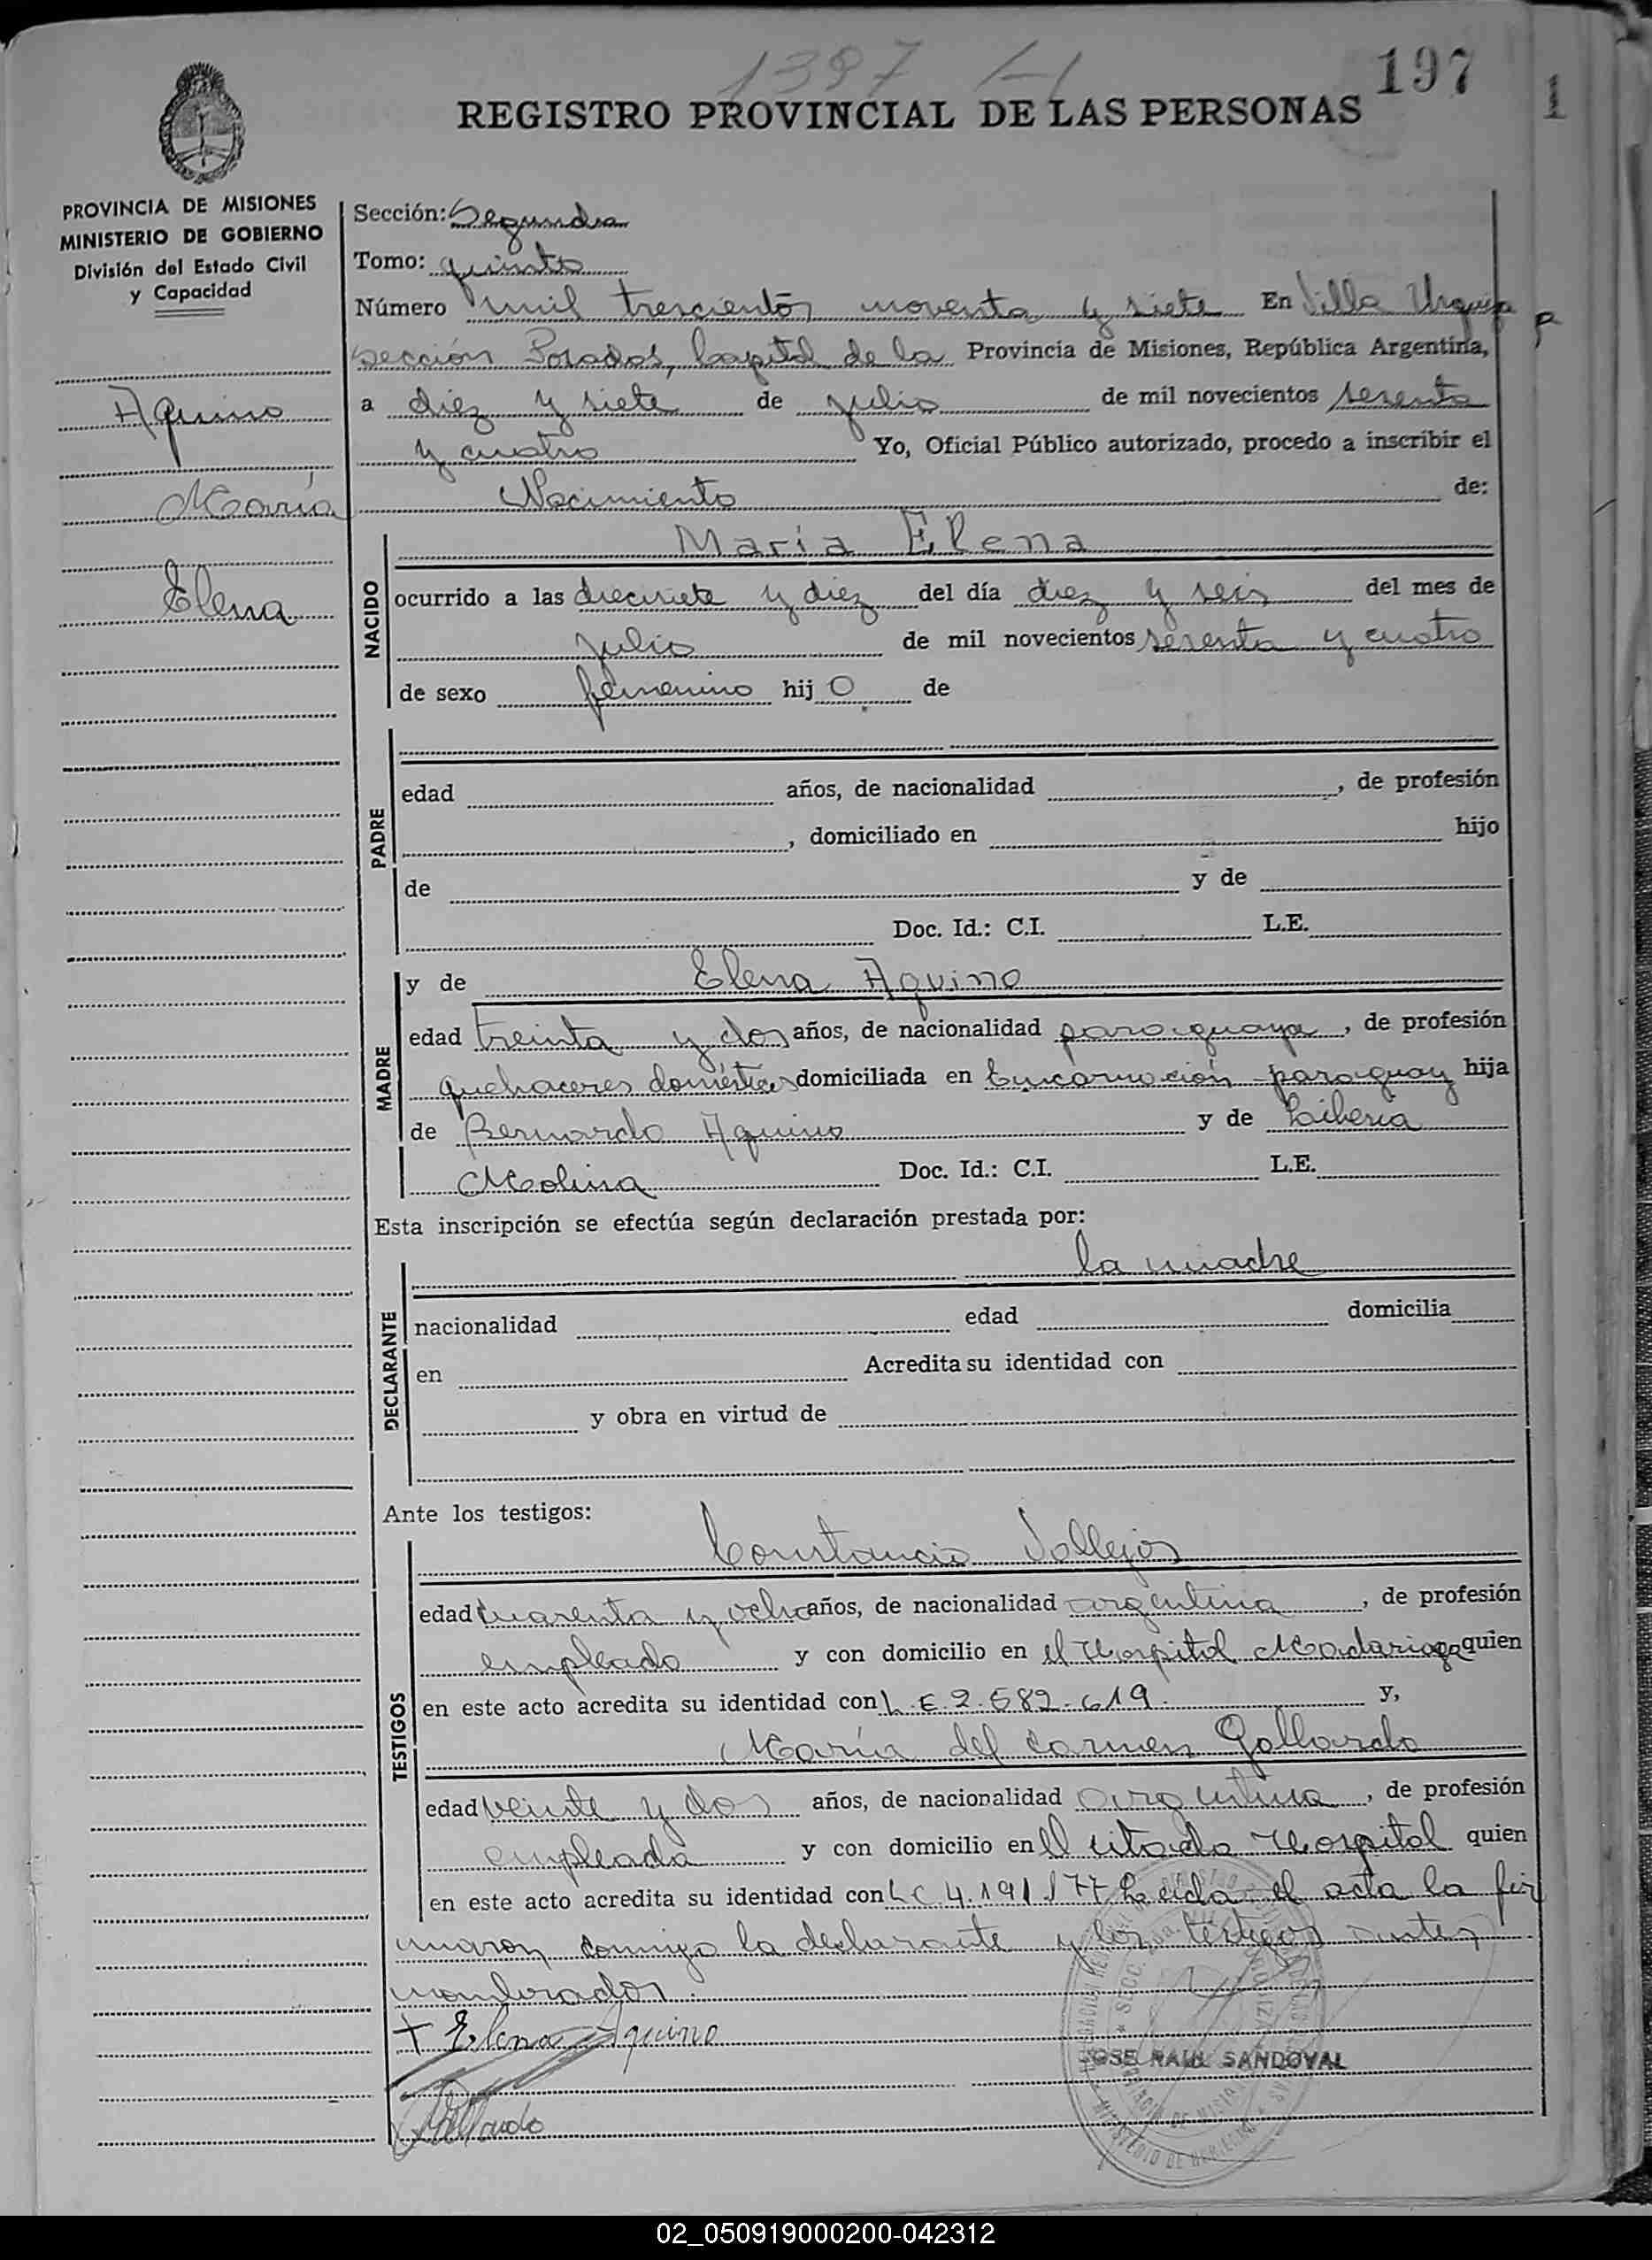 1397
197
1
REGISTRO PROVINCIAL DE LAS PERSONAS
PROVINCIA DE MISIONES
MINISTERIO DE GOBIERNO
División del Estado Civil
y Capacidad
Aquino
María
Elena
Sección: Segunda
Tomo: quinto
Número mil trescientos noventa y siete En Villa Urquiza
sección Posadas, Capital de la Provincia de Misiones, República Argentina,
a diez y siete de julio de mil novecientos sesenta
y cuatro Yo, Oficial Público autorizado, procedo a inscribir el
Nacimiento de:
NACIDO
Maria Elena
ocurrido a las diecisiete y diez del día diez y seis del mes de
julio de mil novecientos sesenta y cuatro
de sexo femenino hij o de
PADRE
edad años, de nacionalidad , de profesión
, domiciliado en hijo
de y de
Doc. Id.: C.I. L.E.
MADRE
y de Elena Aquino
edad treinta y dos años, de nacionalidad paraguaya, de profesión
quehaceres domésticos domiciliada en Encarnación - paraguay hija
de Bernardo Aquino y de
Molina Doc. Id.: C.I. L.E.
Esta inscripción se efectúa según declaración prestada por:
DECLARANTE
la madre
nacionalidad edad domicilia
en Acredita su identidad con
y obra en virtud de
Ante los testigos:
TESTIGOS
Constancio Vallejos
edad cuarenta y ocho años, de nacionalidad argentina, de profesión
empleado y con domicilio en el Hospital Madariaga quien
en este acto acredita su identidad con L.E 2.582.619. y,
María del Carmen Gallardo
edad veinte y dos años, de nacionalidad argentina, de profesión
empleada y con domicilio en el citado Hospital quien
en este acto acredita su identidad con L C 4.191.177 Leida el acta la fir
maron conmigo la declarante y los testigos antes
nombrados.
+ Elena Aquino
JOSE RAUL SANDOVAL
Gallardo
02_050919000200-042312